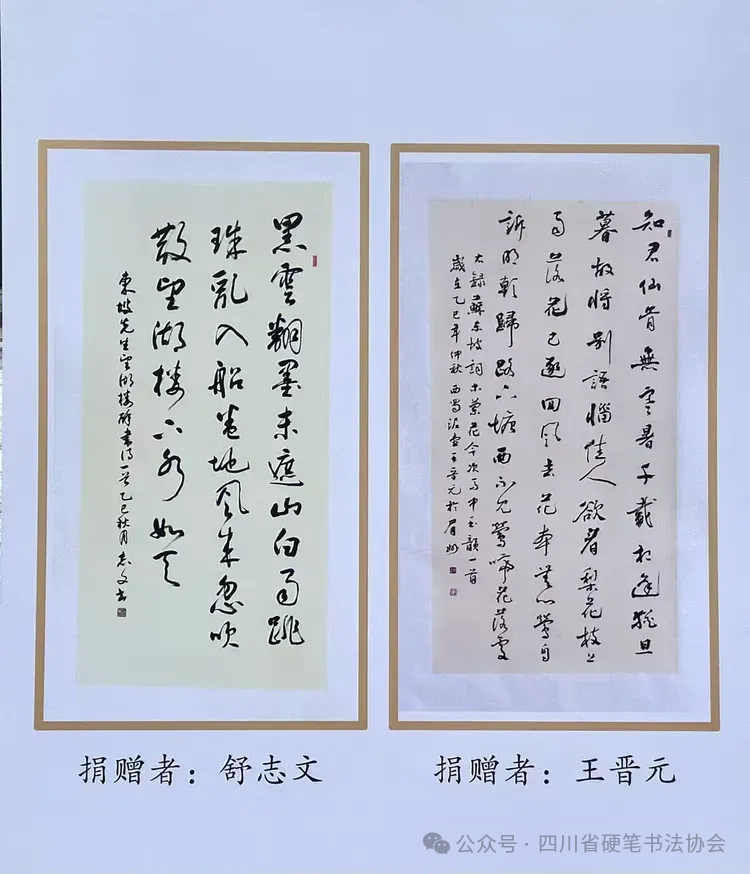 黑雲翻墨未遮山白雨跳
珠亂入船卷地風来忽吹
散望湖樓下水如天
東坡先生望湖樓醉書詩一首乙巳秋月志文書
知君仙骨無寒暑千載相逢猶旦
暮故將別語惱佳人欲看梨花枝上
雨落花已逐回風去花本無心鶯自
訴明朝歸路下塘西不見鶯啼花落處
録蘇東坡詞木蘭花令次馬中玉韻一首
歲在乙巳年仲秋西蜀王晉元於眉州
捐赠者：舒志文
捐赠者：王晋元
公众号·四川省硬笔书法协会